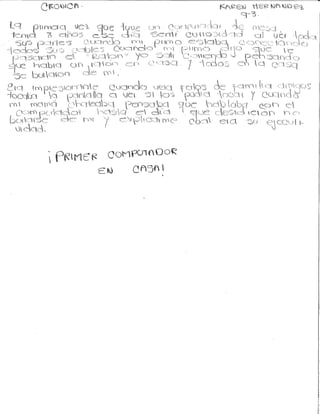 CRONICA- KAREN HERNANDEZ
9-3.
La primera vez que tuve un computador de mesa
tenia 3 años ese dia senti curiosidad al ver todas
sus partes cuando mi primo estaba conectando
todos sus cables cuando mi primo dijo que le
pasaran el "Raton" yo sali corriendo pensando
que habia un raton en casa y todos en la casa
se bularon de mi.
Era impresionante cuando veia fotos de familia amigos
tocaba la pantalla a ver si los podia tocar y cuando
mi mama chateaba pensaba que hablaba con el
computador hasta el dia que
burlarse de mi y explicarme cual era su
¡PRIMER COMPUTADOR
EN CASA!